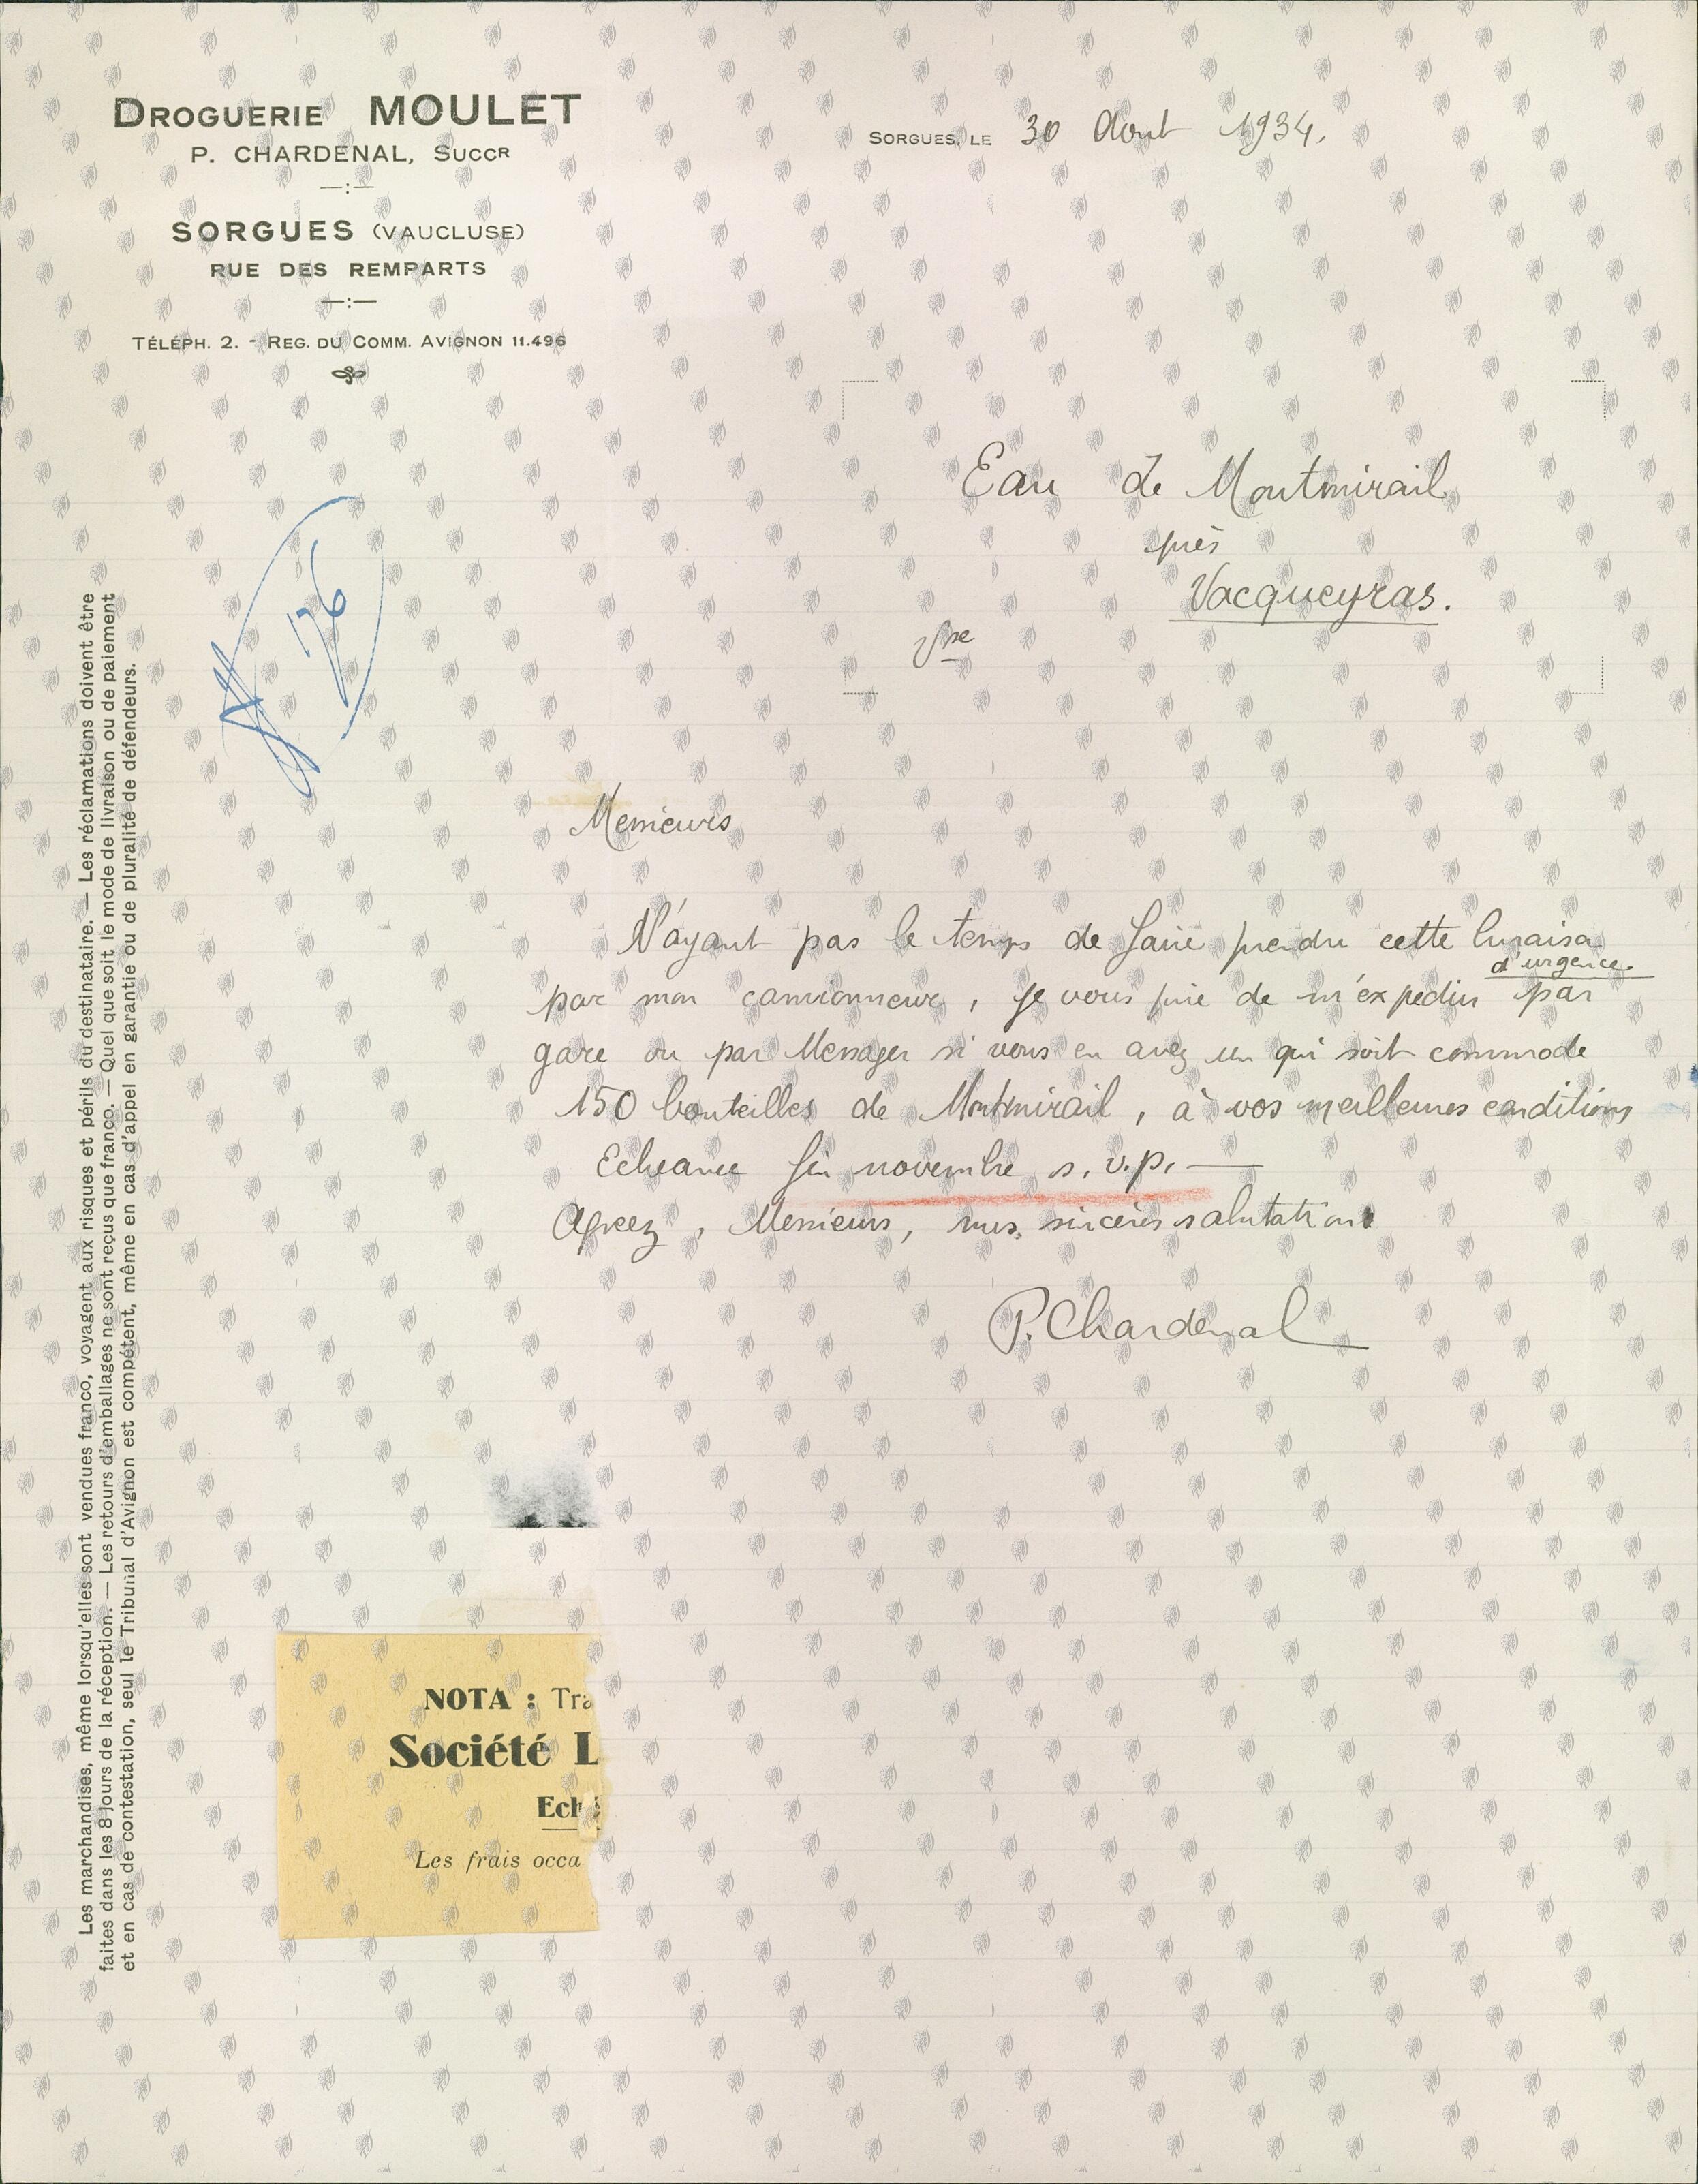 DROGUERIE MOULET
P. CHARDENAL, SUCCR
SORGUES (VAUCLUSE)
RUE DES REMPARTS
TÉLÉPH. 2. - REG. DU COMM. AVIGNON 11.496
SORGUES, LE 30 Aout 1934.
Eau de Montmirail
près
Vacqueyras.
Vse
Messieurs
N'ayant pas le temps de faire prendre cette livraison
par mon camionneur, je vous prie de m'expédier d'urgence par
gare ou par Messager si vous en avez un qui soit commode
150 bouteilles de Montmirail, à vos meilleures conditions
Echeance fin novembre s.v.p. —
Agréez, Messieurs, mes sincères salutations
P. Chardenal
Les marchandises, même lorsqu'elles sont vendues franco, voyagent aux risques et périls du destinataire. — Les réclamations doivent être
faites dans les 8 jours de la réception. — Les retours d'emballages ne sont reçus que franco. — Quel que soit le mode de livraison ou de paiement
et en cas de contestation, seul le Tribunal d'Avignon est compétent, même en cas d'appel en garantie ou de pluralité de défendeurs.
NOTA : Tra
Société L
Eché
Les frais occa